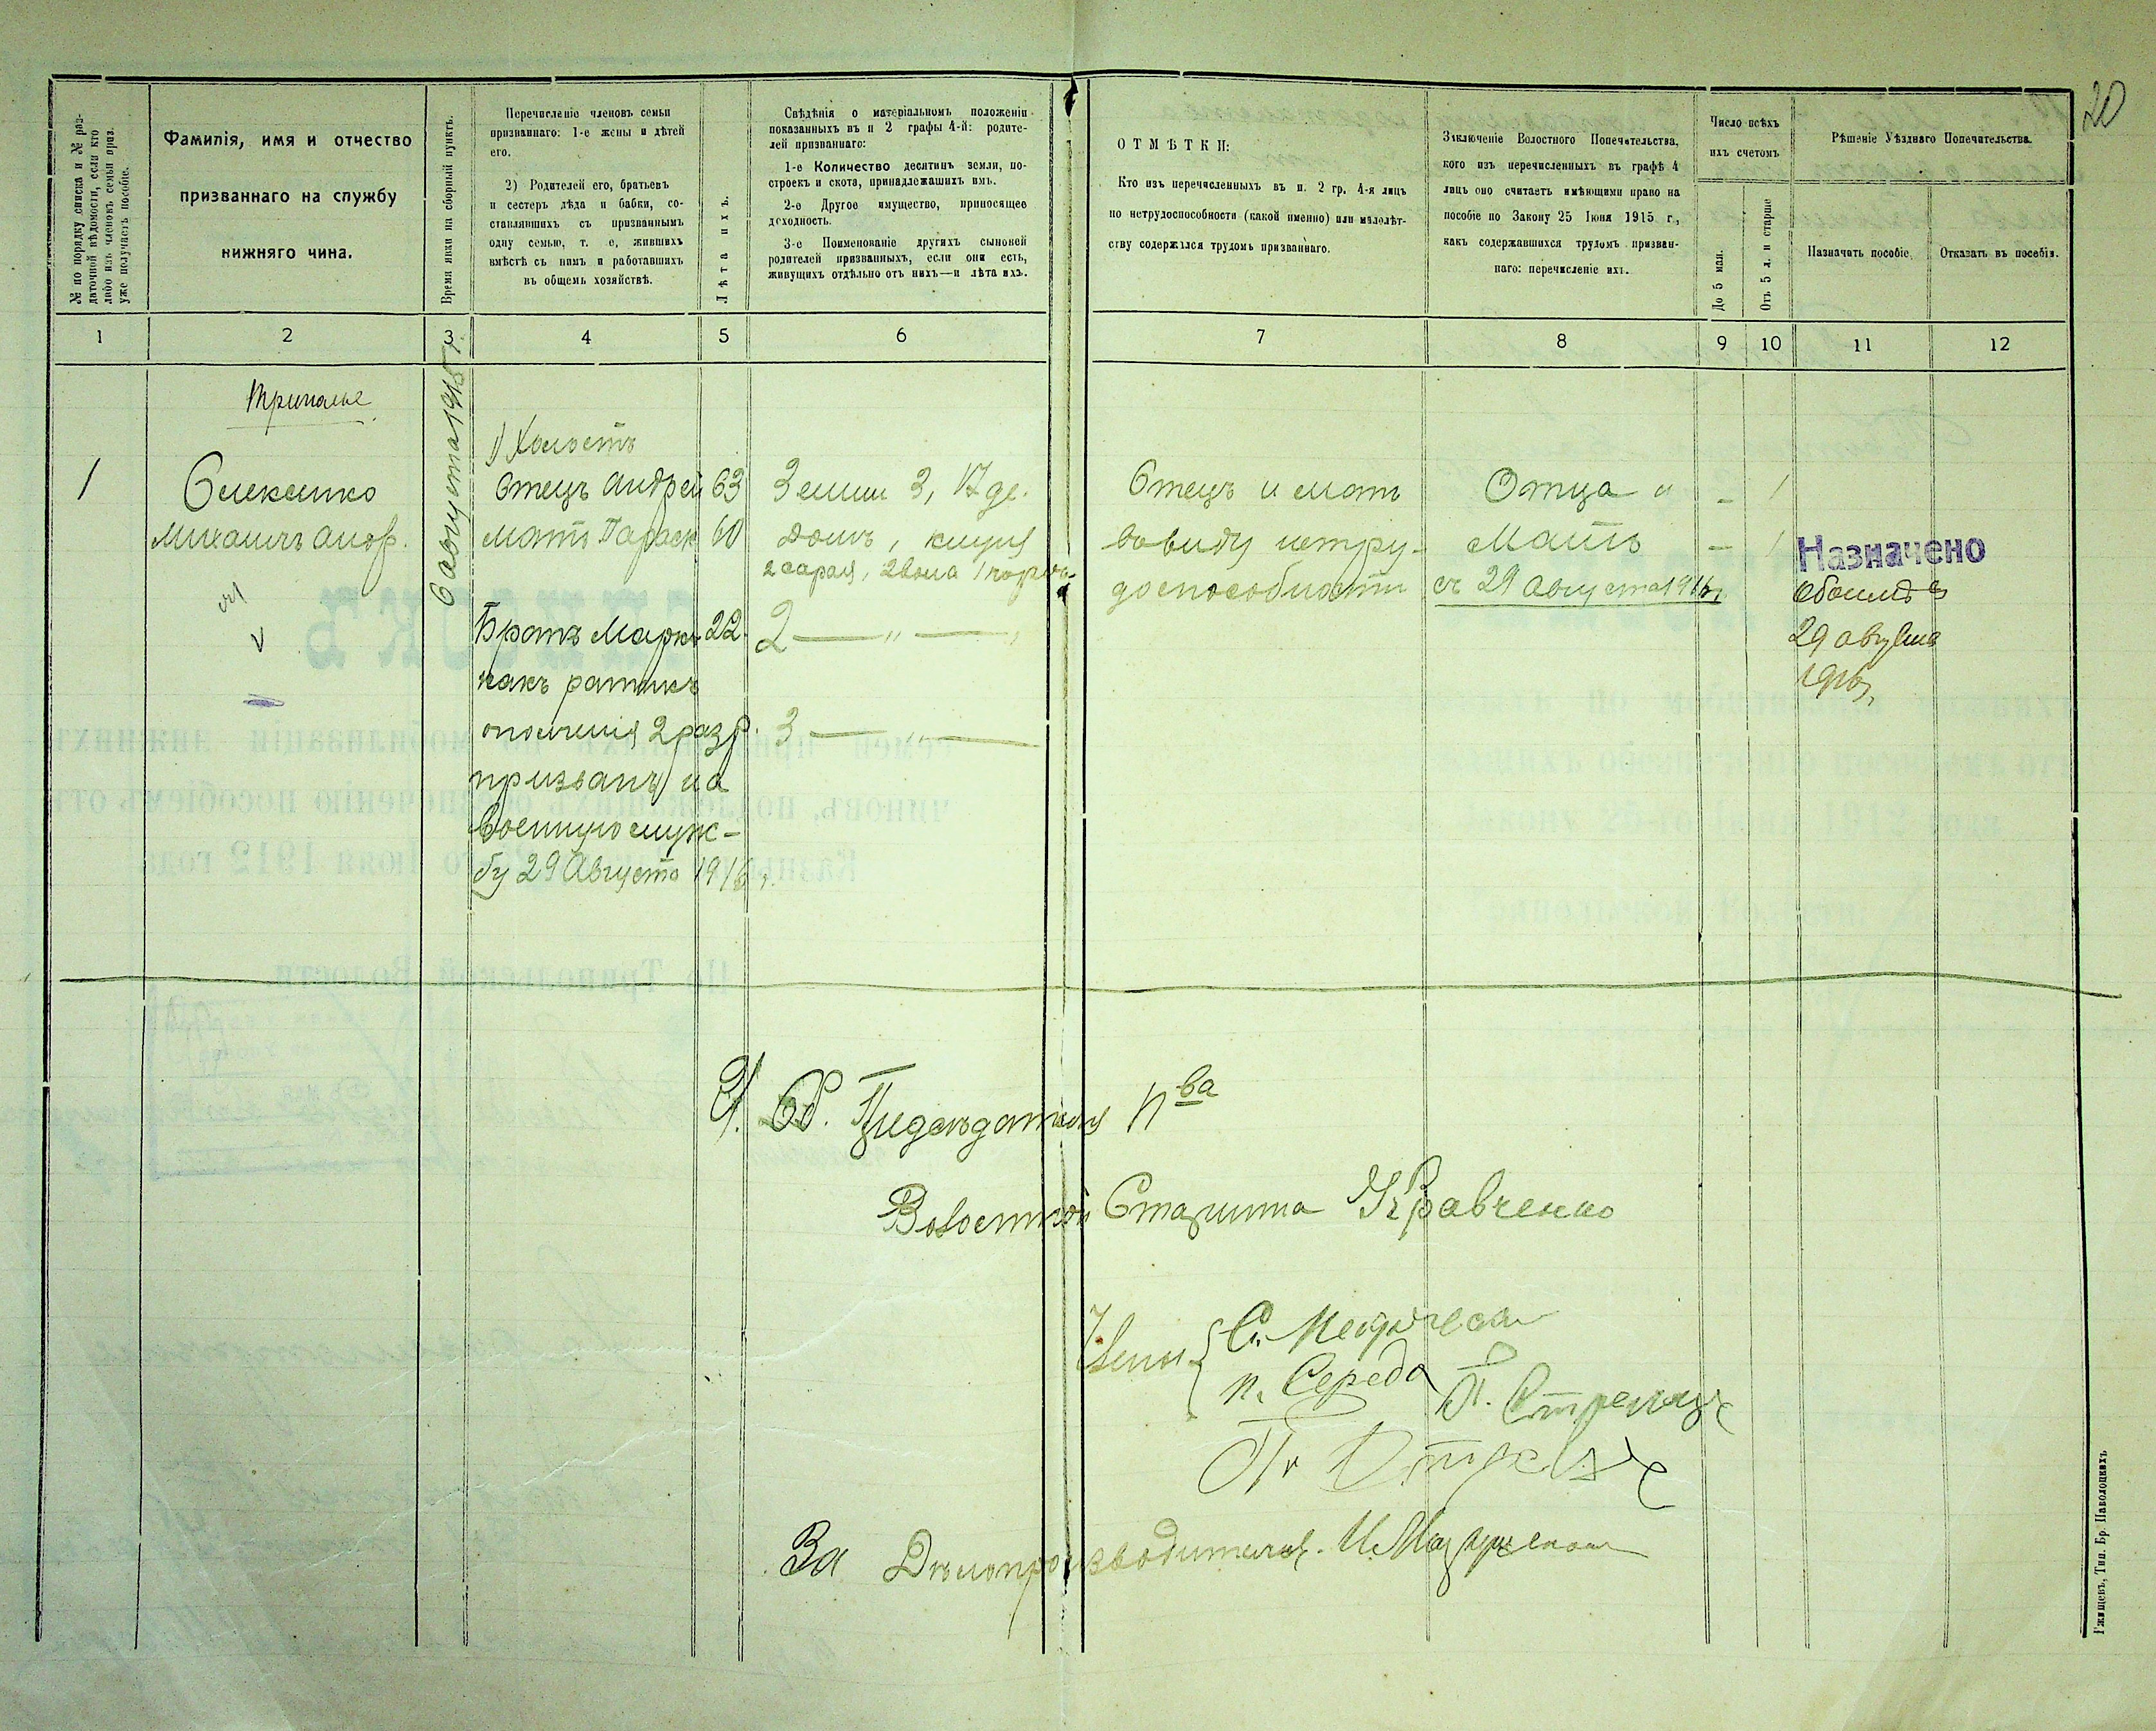 20
№ по порядку списка и № раз-
даточной вѣдомости, если кто
либо изъ членовъ семьи приз.
уже получаетъ пособіе.
Фамилія, имя и отчество
призваннаго на службу
нижняго чина.
Время явки на сборный пунктъ.
Перечисленіе членовъ семьи
призваннаго: 1-е жены и дѣтей
его.
2) Родителей его, братьевъ
и сестеръ дѣда и бабки, со-
ставлявшихъ съ призваннымъ
одну семью, т. е, жившихъ
вмѣстѣ съ нимъ и работавшихъ
въ общемъ хозяйствѣ.
Лѣта ихъ.
Свѣдѣнія о матеріальномъ положеніи
показанныхъ въ п 2 графы 4-й: родите-
лей призваннаго:
1-е Количество десятинъ земли, по-
строекъ и скота, принадлежащихъ имъ.
2-е Другое имущество, приносящее
доходность.
3-е Поименованіе другихъ сыновей
родителей призванныхъ, если они есть,
живущихъ отдѣльно отъ нихъ—и лѣта ихъ.
ОТМѢТКИ:
Кто изъ перечисленныхъ въ п. 2 гр. 4-я лицъ
по нетрудоспособности (какой именно) или малолѣт-
ству содержался трудомъ призваннаго.
Заключеніе Волостного Попечительства,
кого изъ перечисленныхъ въ графѣ 4
лицъ оно считаетъ имѣющими право на
пособіе по Закону 25 Іюня 1915 г.,
какъ содержавшихся трудомъ призван-
наго: перечисленіе ихъ.
Число всѣхъ
ихъ счетомъ
До 5 мал.
Отъ 5 л. и старше
Рѣшеніе Уѣзднаго Попечительства.
Назначить пособіе.
Отказать въ пособіи.
1 2 3 4 5 6 7 8 9 10 11 12
Триполье
6 августа 1915 г.
1) Холостъ
1 Олексенко Отецъ Андрей 63 Земли 3, 17 де. Отецъ и мать Отца и – 1
Михаилъ Андр. Мать Параск 60 Домъ, клуня ввиду нетру- Мать – 1
2 сарая, 2 вола 1 корова доспособности съ 29 августа 1916 г.
Назначено
обоимъ съ
29 августа
1916 г.
Братъ Маркъ 22 2 — „ —
какъ ратникъ
ополченія 2 разр. 3 — „ —
призванъ на
военную служ-
бу 29 Августа 1916 г.
И. Об. Предсѣдателя П-ва
Волостной Старшина Кравченко
Члены
П. Середа
П. Стрелец
За Дѣлопроизводителя.
Ржищевъ, Тип. Бр. Наволоцкихъ